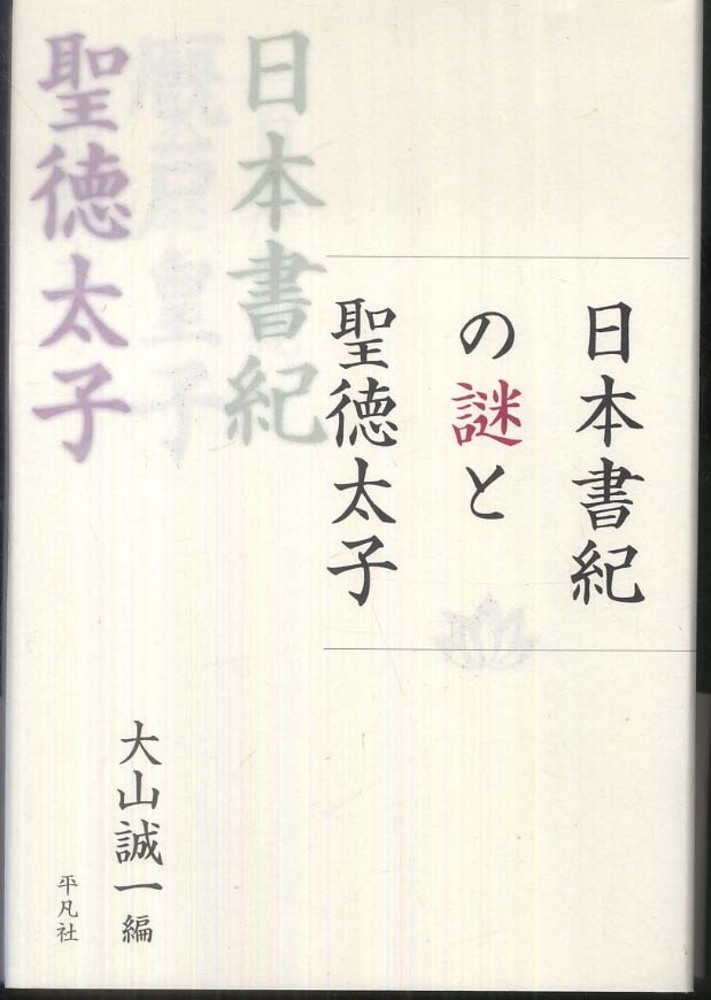 日本書紀
の謎と
聖徳太子
日本書紀
厩戸皇子
聖徳太子
大山誠一編
平凡社